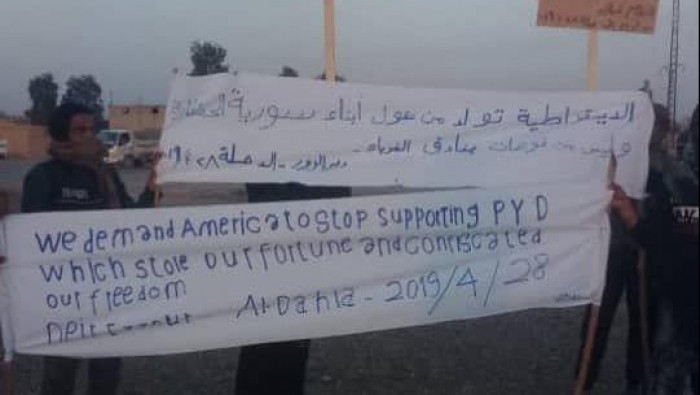 الديمقراطية تولد من عقول أبناء سورية
وليس من فوهات بنادق الغرباء
ديرالزور - الدحلة ٢٨ ٤ ١٩
We demand America to Stop Supporting PYD
which Stole our fortune and confiscated
our freedom
Al-Dahla - 2019/4/28